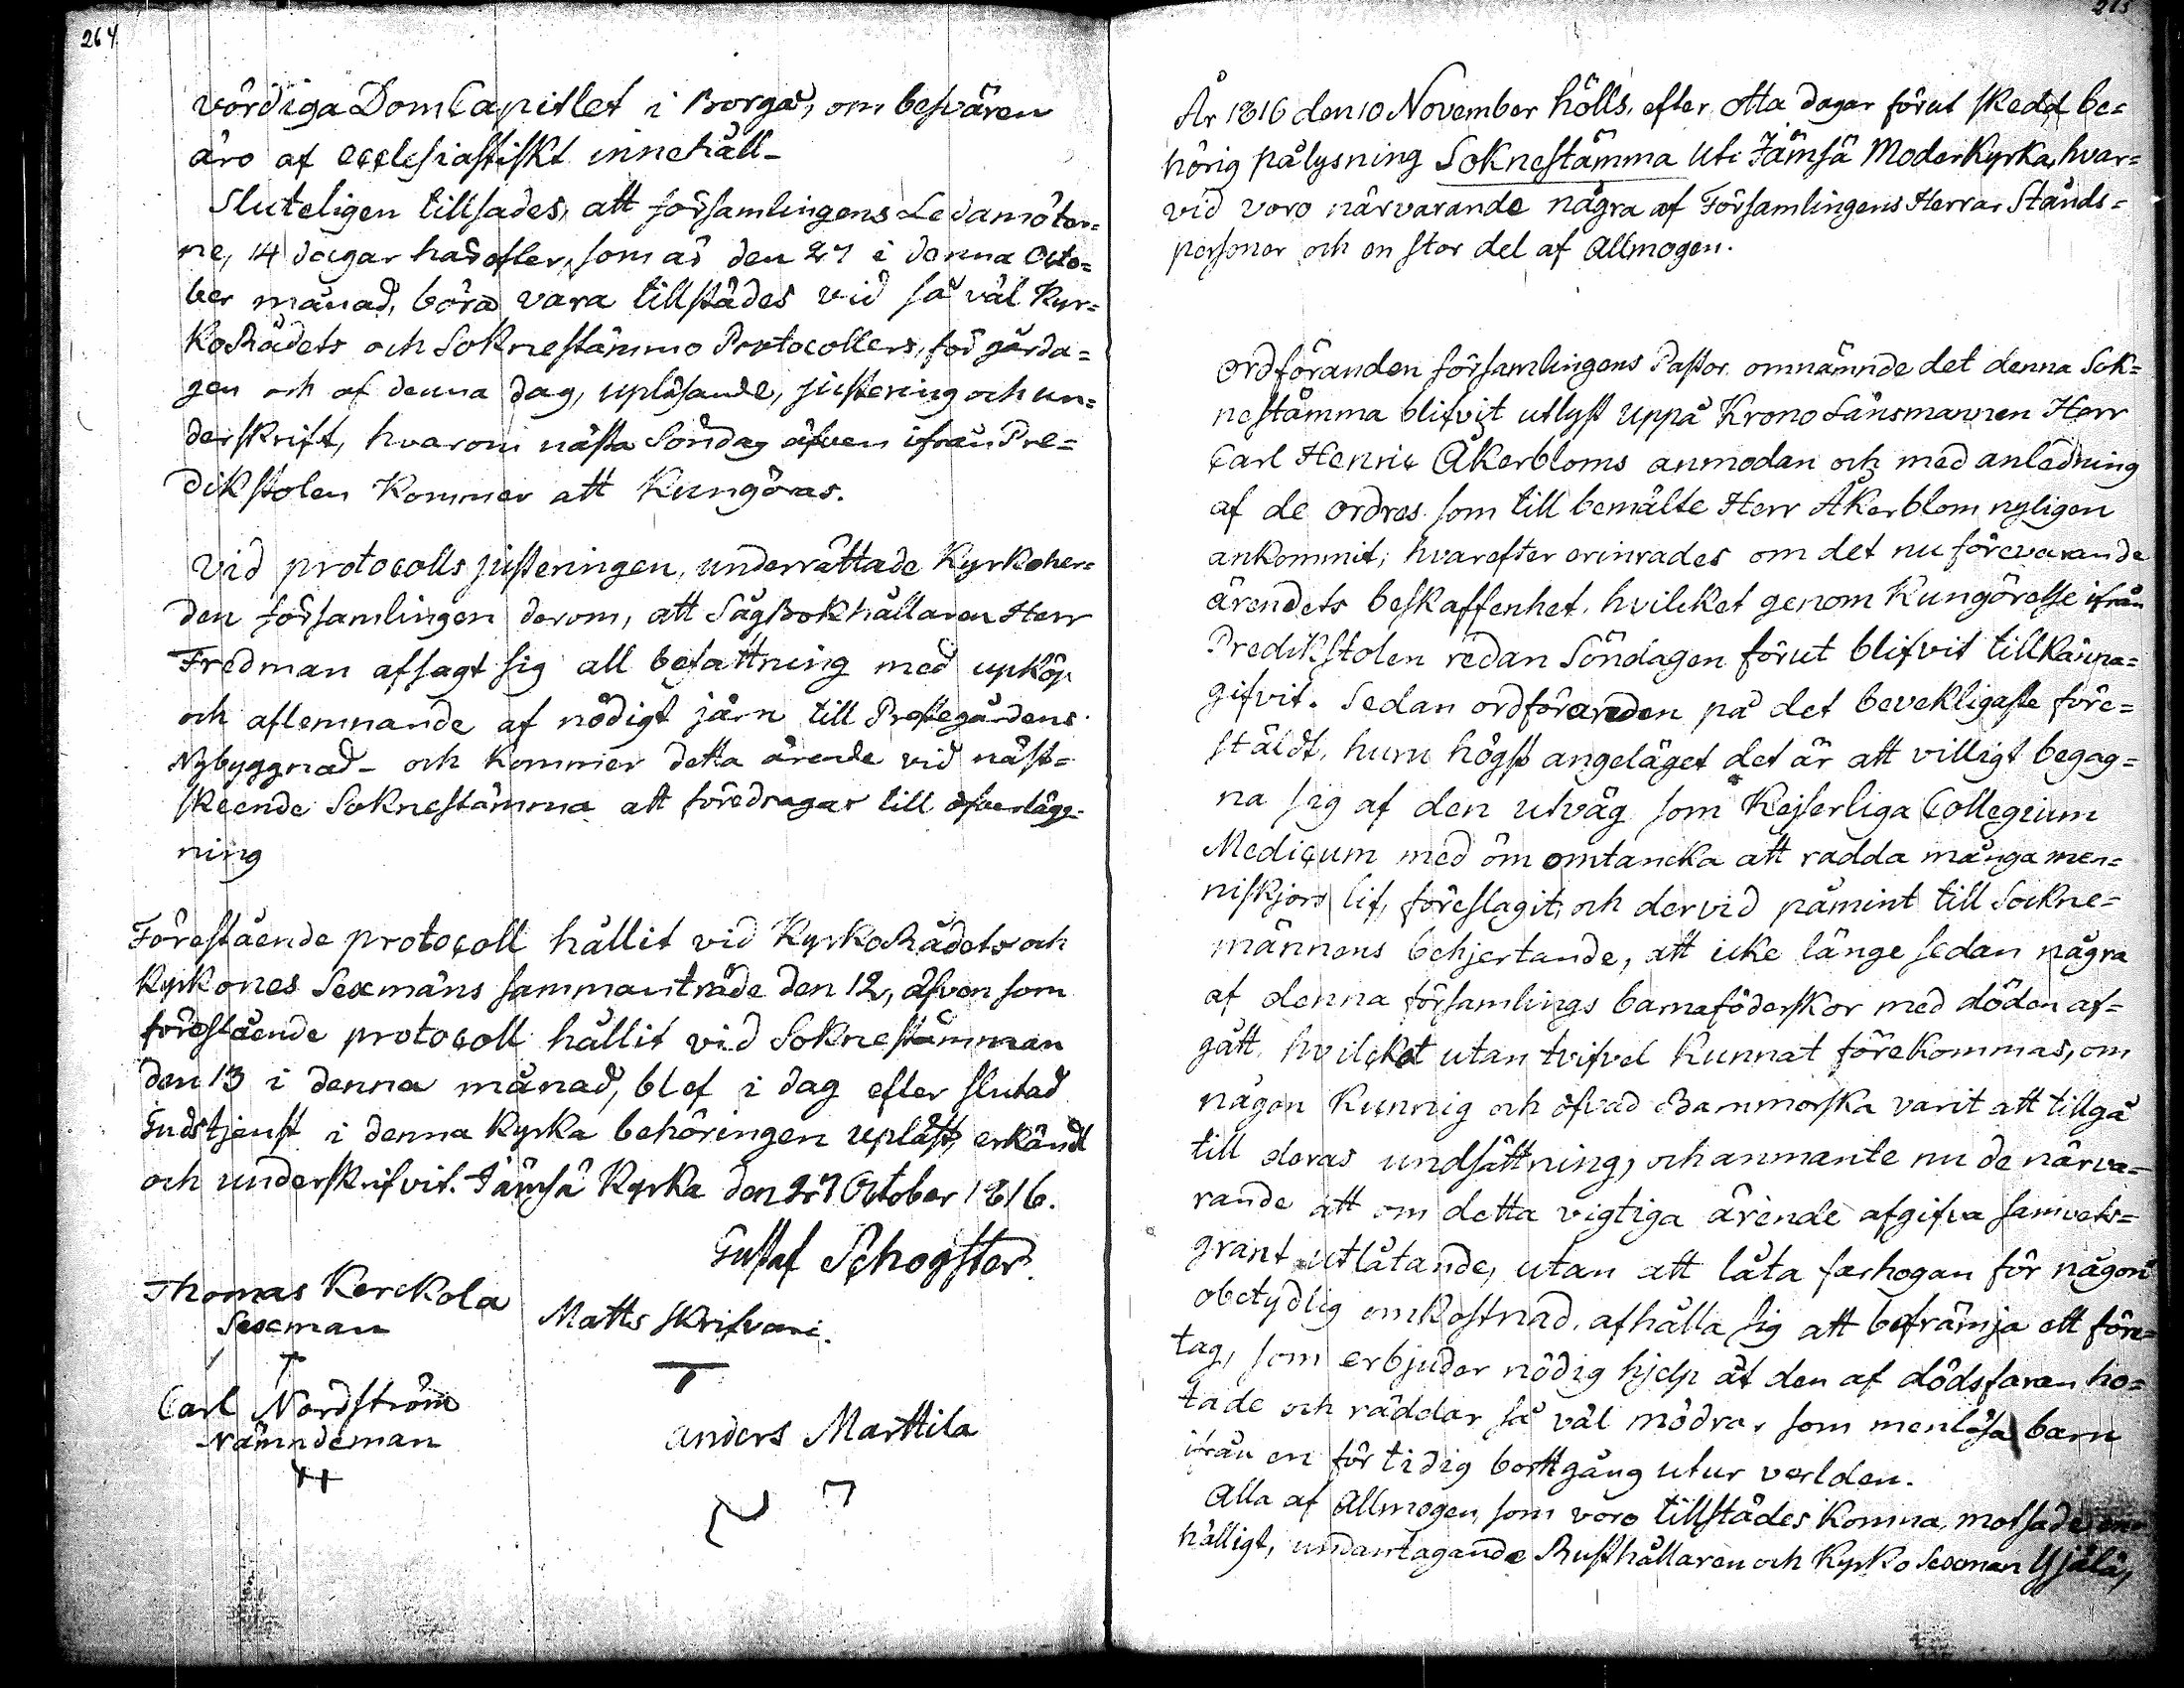 264.
vördiga DomCapitlet i Borgå, om besvären
äro af ecclesiastiskt innehåll_
Sluteligen tillsades, att församlingens Ledamöter=
ne, 14 dagar härefter, som är den 27 i denna Octo=
ber månad, böra vara tillstädes vid så väl Kyr=
koRådets och Soknestämmo Protocollers, för gårda=
gen och af denna dag, upläsande, justering och un=
derskrift, hvarom nästa Söndag äfven ifrån Pre=
dikstolen kommer att kungöras.
Vid protocolls justeringen, underrättade Kyrkoher=
den församlingen derom, att SågBokhållaren Herr
Fredman afsagt sig all befattning med upköp
och aflemnande af nödigt järn till Prestegårdens
Nybyggnad_ och kommer detta ärende vid näst=
skeende Soknestämma att föredragas till öfverlägg=
ning
Förestående protocoll hållit vid KyrkoRådets och
Kyrkones Sexmäns sammanträde den 12, äfven som
förestående protocoll hållit vid Soknestämman
den 13 i denna månad, blef i dag efter slutad
Gudstjenst i denna Kyrka behöringen upläst, erkändt
och underskrifvit. Jämsä Kyrka den 27 October 1816.
Gustaf Schogster.
Thomas Kerckola
Sexman
Matts Skrifvari.
Carl Nordström
Nämndeman
Anders Marttila
År 1816 den 10 November hölls, efter otta dagar förut skedd be=
hörig pålysning Soknestämma uti Jämsä Moderkyrka, hvar=
vid voro närvarande några af Församlingens Herrar Stånds=
personer och en stor del af Allmogen.
Ordföranden församlingens Pastor omnämnde det denna Sok=
nestämma blifvit utlyst uppå Krono Länsmannen Herr
Carl Henric Åkerbloms anmodan och med anledning
af de ordres som till bemälte Herr Åkerblom nyligen
ankommit; hvarefter erinrades om det nu förevarande
ärendets beskaffenhet, hvilcket genom Kungörelse ifrån
Predikstolen redan Söndagen förut blifvit tillkänna=
gifvit. Sedan ordföranden på det bevekligaste före=
stäldt, huru högst angeläget det är att villigt begag=
na sig af den utväg som Kejserliga Collegium
Medicum med öm omtancka att rädda många men=
niskjors lif, föreslagit, och dervid påmint till Sockne=
männens behjertande, att icke länge sedan några
af denna församlings barnaföderskor med döden af=
gått, hvilcket utan tvifvel kunnat förekommas, om
någon kunnig och öfvad Barnmorska varit att tillgå
till deras undsättning, och anmante nu de närva=
rande att om detta vigtiga ärende afgifva samvets=
grant utlåtande, utan att låta farhogan för någon
obetydlig omkostnad, afhålla sig att befrämja ett före=
tag, som erbjuder nödig hjelp åt den af dödsfaran ho=
tade och räddar så väl mödrar som menlösa barn
ifrån en för tidig bortgång utur verlden.
Alla af Allmogen, som voro tillstädes komna, motsade en=
hälligt, undantagande Rusthållaren och Kyrko Sexman Yjälä,